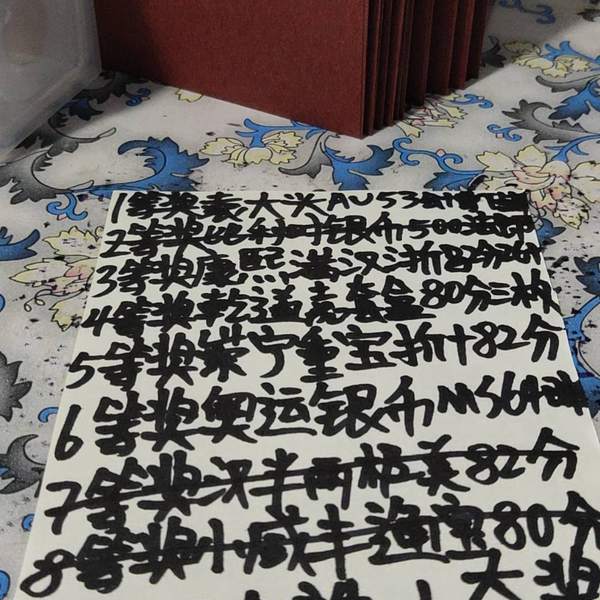 1等奖袁大头AU53
2等奖比利时银币500法郎
3等奖康熙满汉折82分
4等奖乾隆套盒80分三枚
5等奖崇宁重宝折十82分
6等奖奥运银币MS64
7等奖汉半两极美82分
8等奖小咸丰80分
大奖